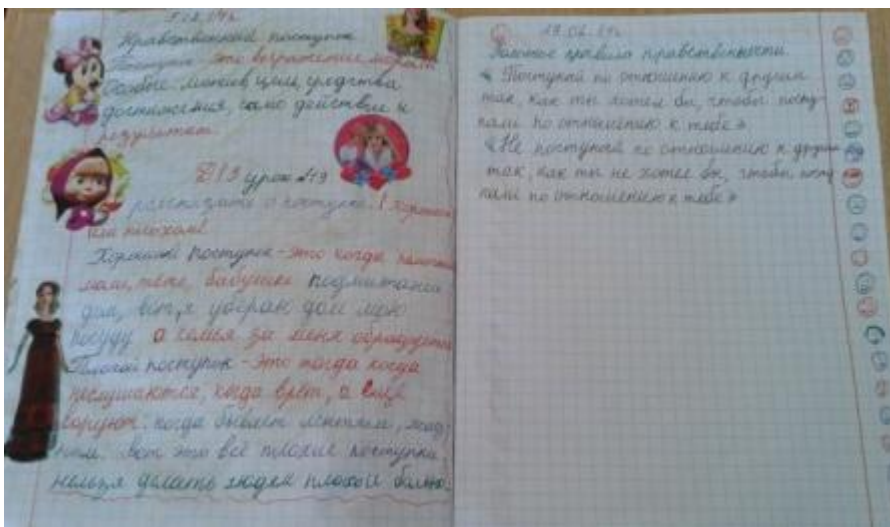 Нравственный поступок
Поступок это возражение морали
Особые: мотив, цель, средства
достижения, само действие и
результат.
Д/З урок №19
рассказать о поступке. (хорошем
или плохом)
Хороший поступок - это когда
маме, тёте, бабушке
дом, вот, я убираю дом мою
посуду а семья за меня
Плохой поступок - это тогда когда
когда врёт, а ещё
воруют. когда бывает лентяем,
Вот это всё плохие поступки
нельзя делать людям плохо и больно.
Золотое правило нравственности.
« Поступай по отношению к другим
так, как ты хотел бы, чтобы посту-
пали по отношению к тебе»
«Не поступай по отношению к другим
так, как ты не хотел бы, чтобы посту
пали по отношению к тебе»